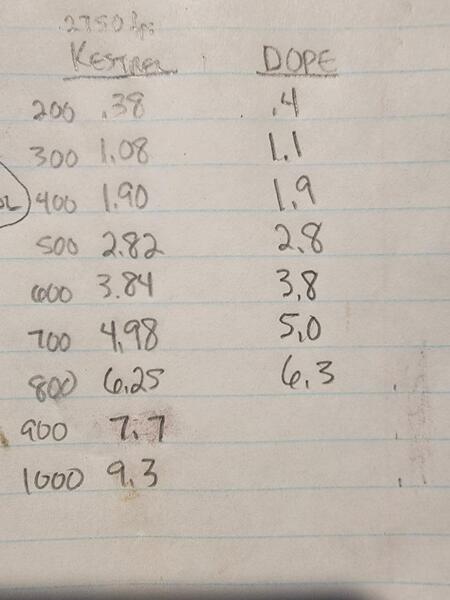 2750 fps
KESTREL DOPE
200 .38 .4
300 1.08 1.1
400 1.90 1.9
500 2.82 2.8
600 3.84 3.8
700 4.98 5.0
800 6.25 6.3
900 7.7
1000 9.3